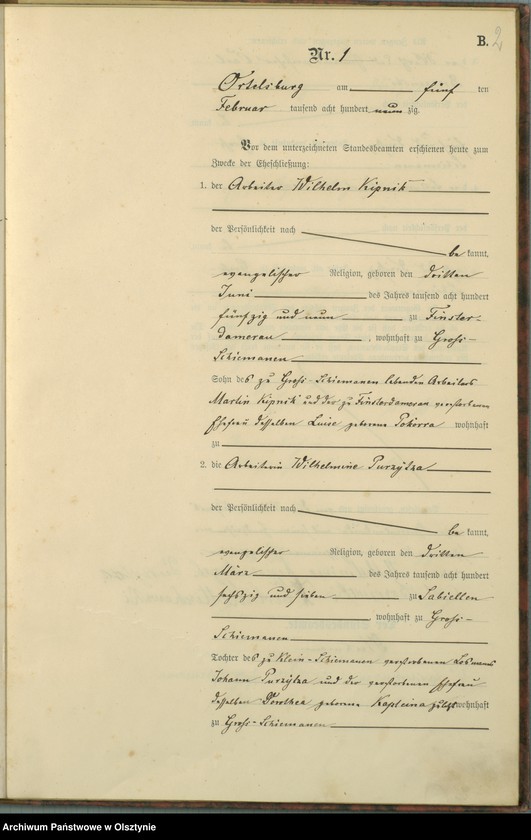 B. 2
Nr. 1
Ortelsburg am fünf ten
Februar tausend acht hundert neun zig.
Vor dem unterzeichneten Standesbeamten erschienen heute zum
Zwecke der Eheschließung:
1. der Arbeiter Wilhelm Kipnik
der Persönlichkeit nach
be kannt,
evangelischer Religion, geboren den dritten
Juni des Jahres tausend acht hundert
fünfzig und neun zu Finster-
damerau, wohnhaft zu Groß-
Schiemanen
Sohn des zu Groß-Schiemanen lebenden Arbeiters
Martin Kipnik und der zu Finsterdamerau verstorbenen
Ehefrau desselben Luise geborene Pokorra wohnhaft
zu
2. die Arbeiterin Wilhelmine Purzytza
der Persönlichkeit nach
be kannt,
evangelischer Religion, geboren den dritten
März des Jahres tausend acht hundert
sechszig und sieben zu Sabiellen
wohnhaft zu Groß-
Schiemanen
Tochter des zu Klein-Schiemanen verstorbenen Losmanns
Johann Purzytza und der verstorbenen Ehefrau
desselben Dorothea geborene Kapteina zuletzt wohnhaft
zu Groß-Schiemanen
Archiwum Państwowe w Olsztynie